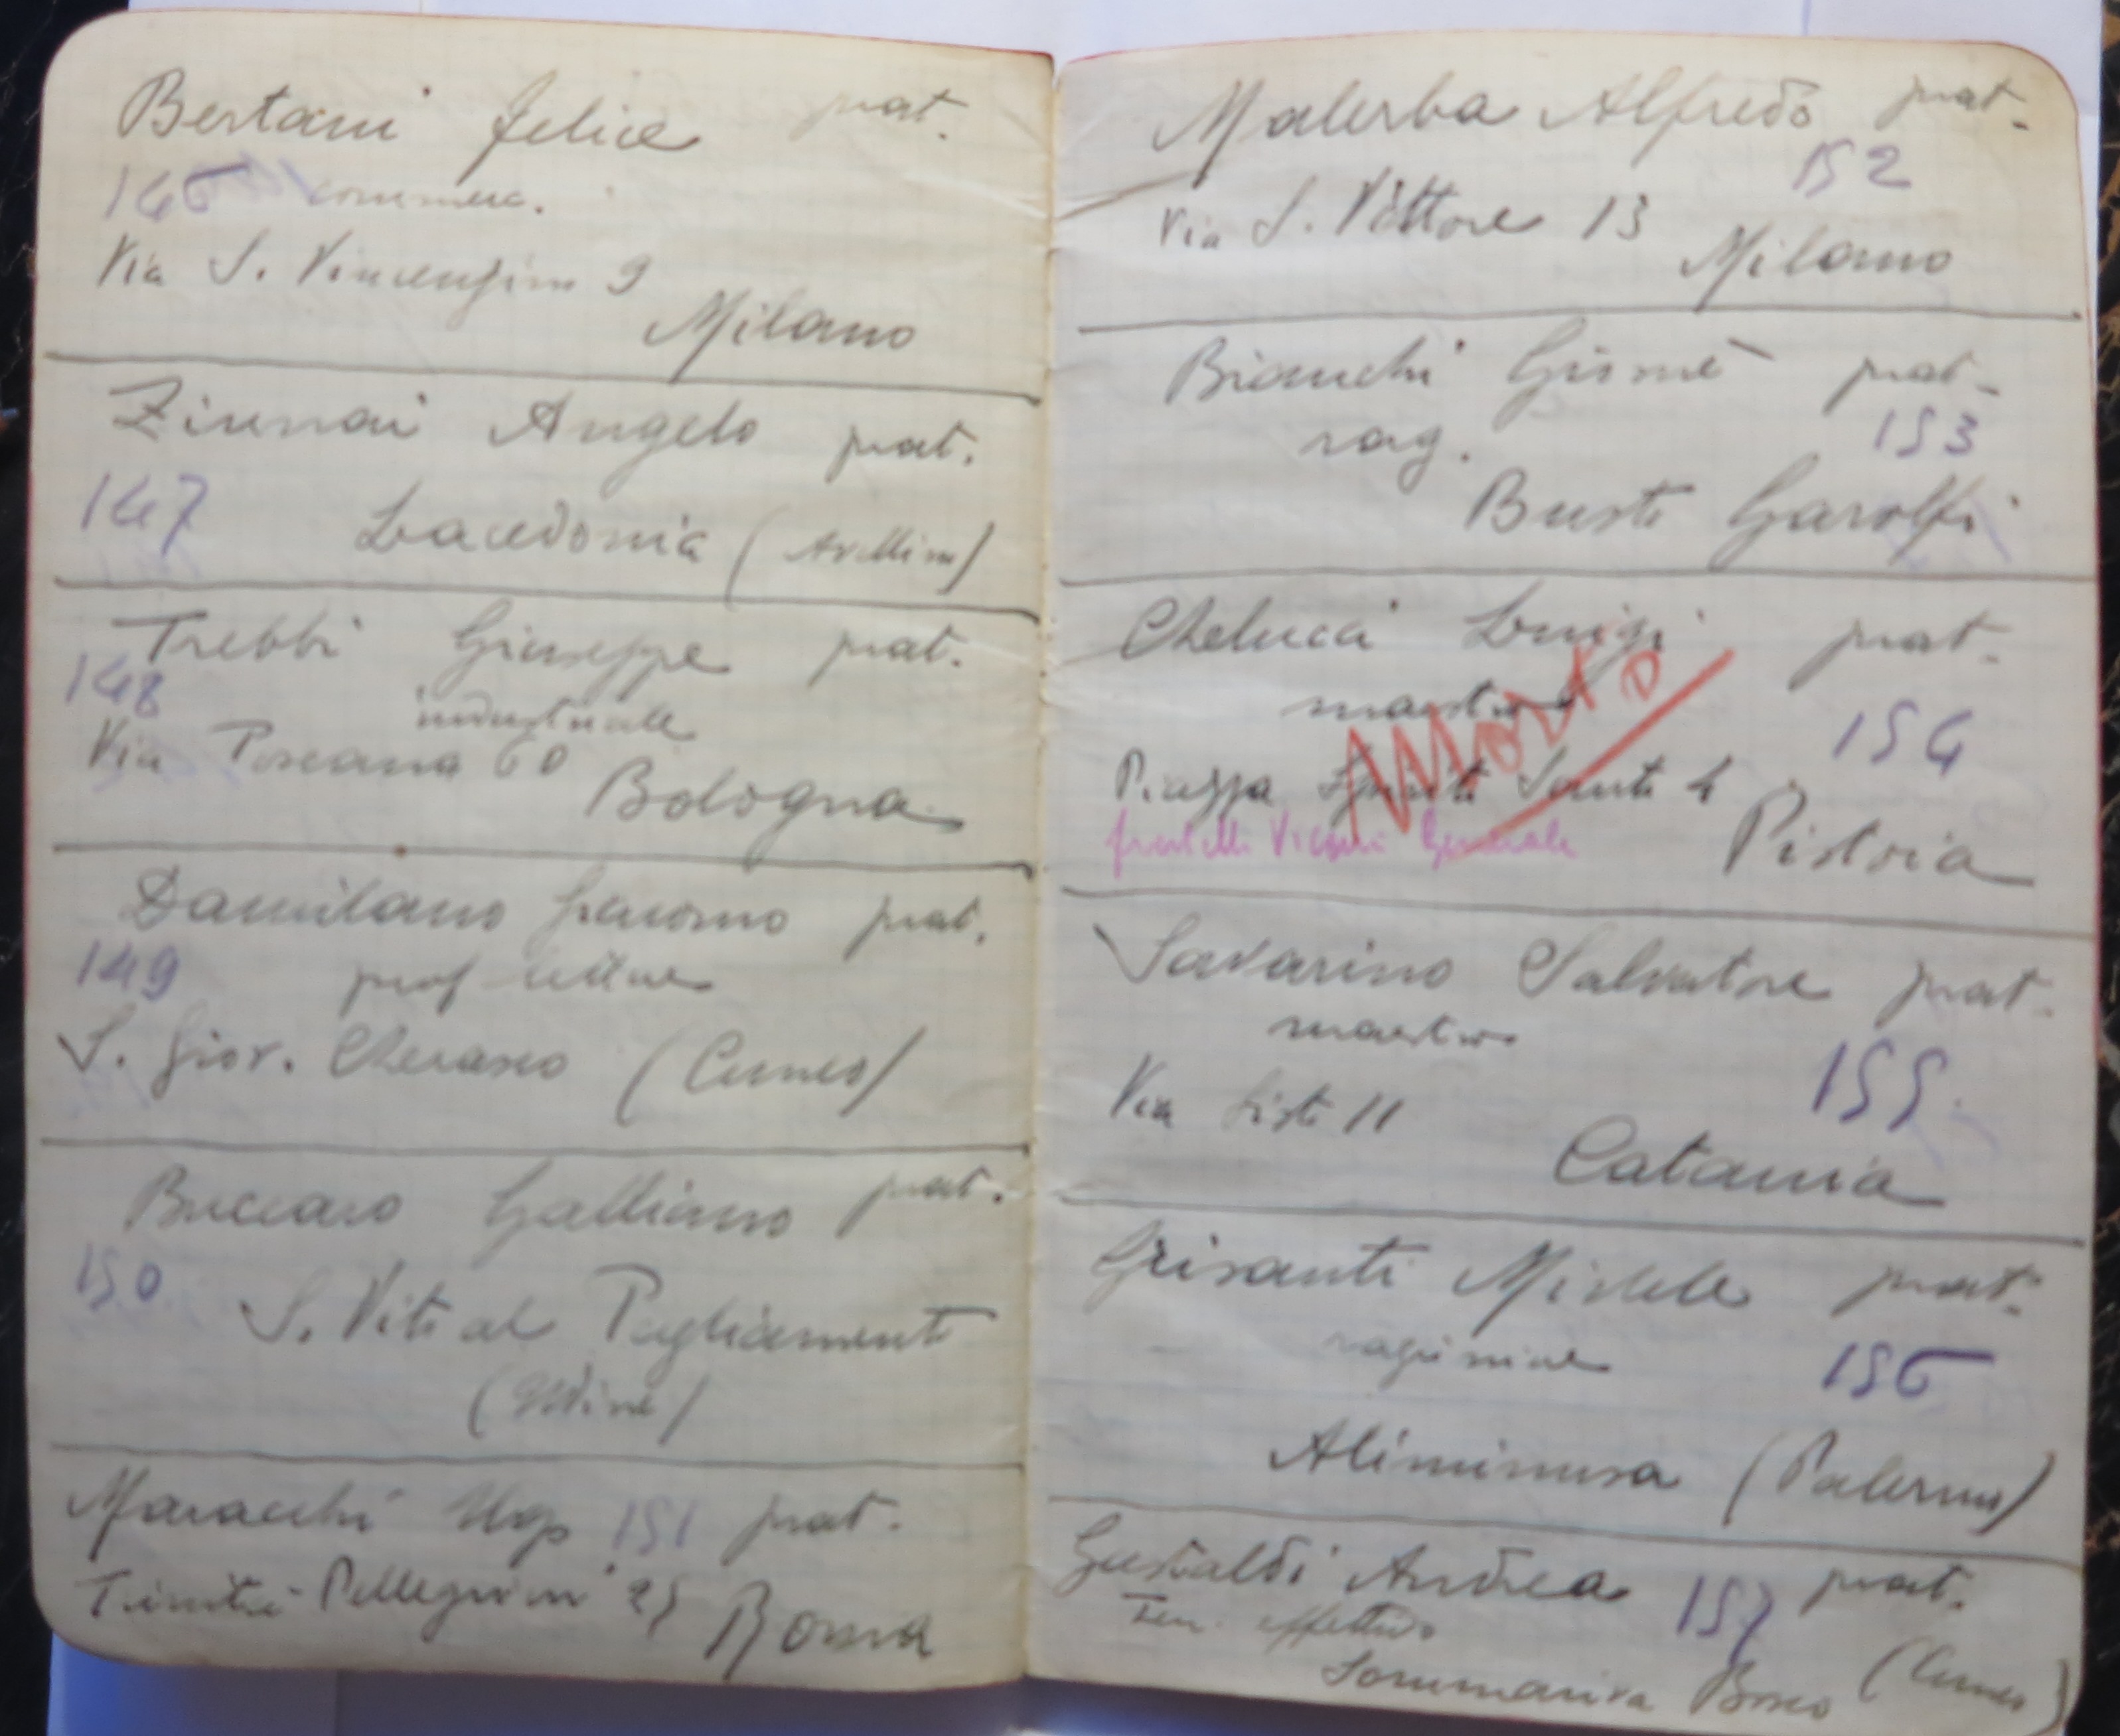 Bertani Felice prat.
146 commerc.
Via S. Vincenzino 9
Milano
Angelo prat.
147 Lacedonia (Avellino)
Trebbi Giuseppe prat.
148
industriale
Via Toscana 60 Bologna
Damilano Giacomo prat.
149 prof lettere
S. Giov. Cherasco (Cuneo)
Buccaro Galliano prat.
150
S. Vito al Tagliamento
(Udine)
Maracchi Ugo 151 prat.
Trinità Pellegrini 25 Roma
Malerba Alfredo prat.
152
Via S. Vittore 13
Milano
Bianchi Giosuè prat.
rag. 153
Busto Garolfi
Chelucci Luigi prat.
maestro
Morto
154
Piazza Spirito Santo 4
fratello Vicario Generale
Pistoia
Savarino Salvatore prat.
maestro
155
Via Sisto 11
Catania
Grisanti Michele prat.
ragioniere 156
Aliminusa (Palermo)
Gastaldi Andrea 157 prat.
Ten. effettivo
Sommariva Bosco (Cuneo)